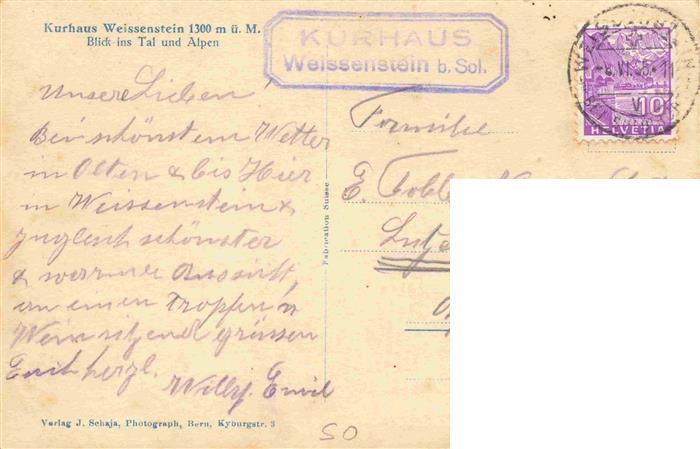 Kurhaus Weissenstein 1300 m ü. M.
Blick ins Tal und Alpen
KURHAUS
Weissenstein b. Sol.
10
HELVETIA
Unsere Lieben!
Bei schönstem Wetter
in Olten & bis Hier
in Weissenstein &
zugleich schönster
& warme Aussicht,
an einen Tropfen
Wein sitzend grüssen
Euch herzl.
Willy. Emil
Familie
E.
Fabrication Suisse
Verlag J. Schaja, Photograph, Bern, Kyburgstr. 3
SO